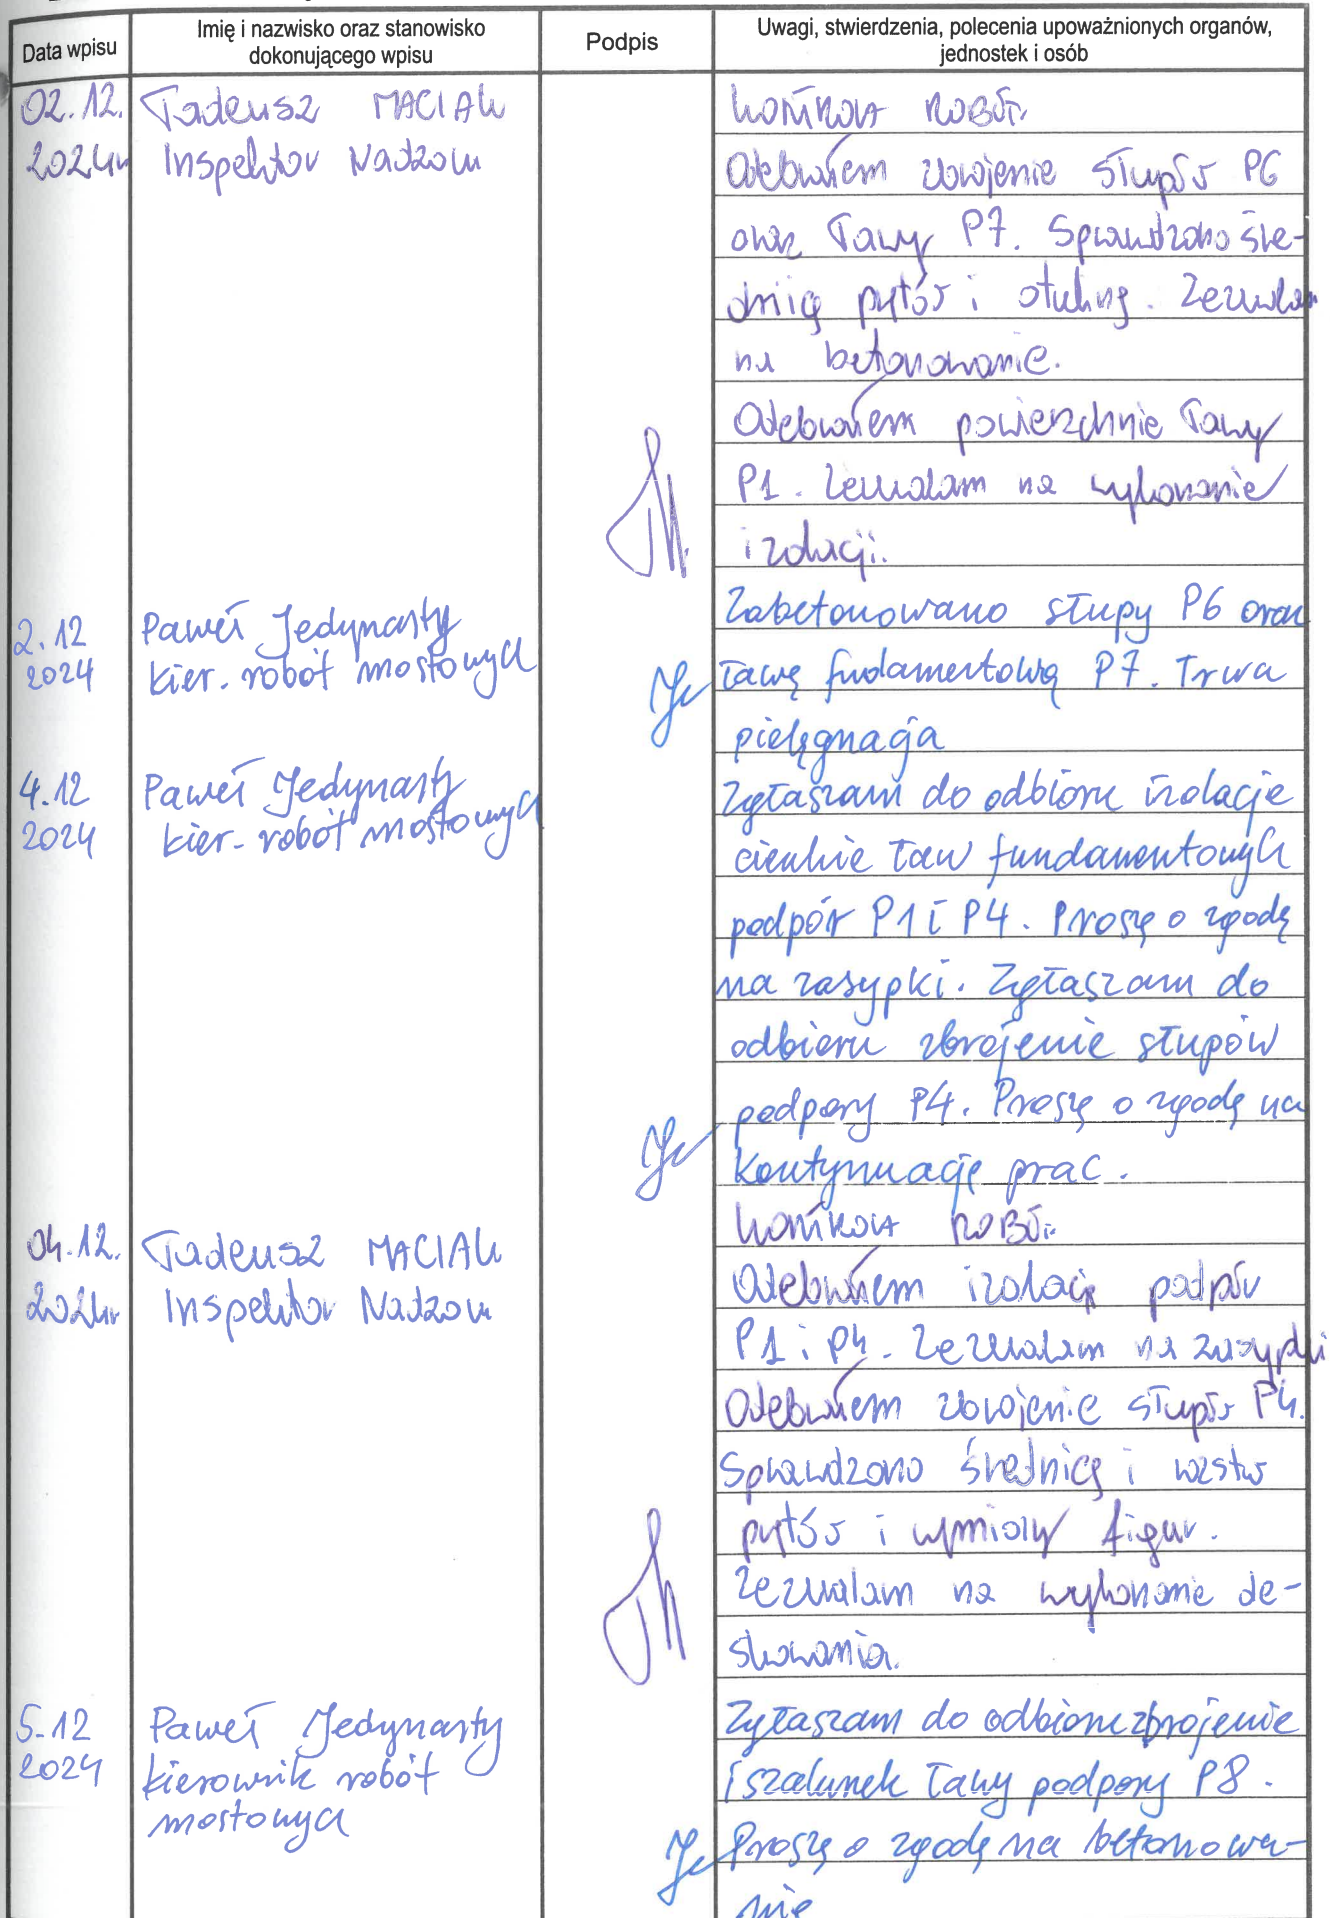 Data wpisu
Imię i nazwisko oraz stanowisko
dokonującego wpisu
Podpis
Uwagi, stwierdzenia, polecenia upoważnionych organów,
jednostek i osób
02.12.
2024r
Tadeusz MACIAK
Inspektor Nadzoru
KONTROLA ROBÓT.
Odebrałem zbrojenie słupów P6
oraz ławy P7. Sprawdzono śre-
dnię prętów i otulinę. Zezwalam
na betonowanie.
Odebrałem powierzchnie ławy
P1. Zezwalam na wykonanie
izolacji.
2.12
2024
Paweł Jedynasty
kier. robót mostowych
Zabetonowano słupy P6 oraz
ławę fudamentową P7. Trwa
pielęgnacja
4.12
2024
Paweł Jedynasty
kier. robót mostowych
Zgłaszam do odbioru izolacje
cienkie ław fundamentowych
podpór P1 i P4. Proszę o zgodę
na zasypki. Zgłaszam do
odbioru zbrojenie słupów
podpory P4. Proszę o zgodę na
kontynuację prac.
04.12.
2024r
Tadeusz MACIAK
Inspektor Nadzoru
KONTROLA ROBÓT.
Odebrałem izolację podpór
P1 i P4. Zezwalam na zasypki
Odebrałem zbrojenie słupów P4.
Sprawdzono średnicę i rozstaw
prętów i wymiary figur.
Zezwalam na wykonanie de-
skowania.
5.12
2024
Paweł Jedynasty
kierownik robót
mostowych
Zgłaszam do odbioru zbrojenie
i szalunek ławy podpory P8.
Proszę o zgodę na betonowa-
nie